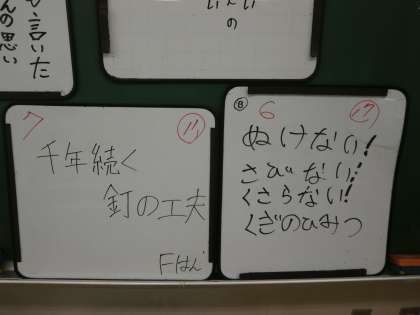 い言いた
んの思い
いの
7
11
千年続く
釘の工夫
Fはん
⑧
6
17
ぬけない!
さびない!
くさらない!
くぎのひみつ